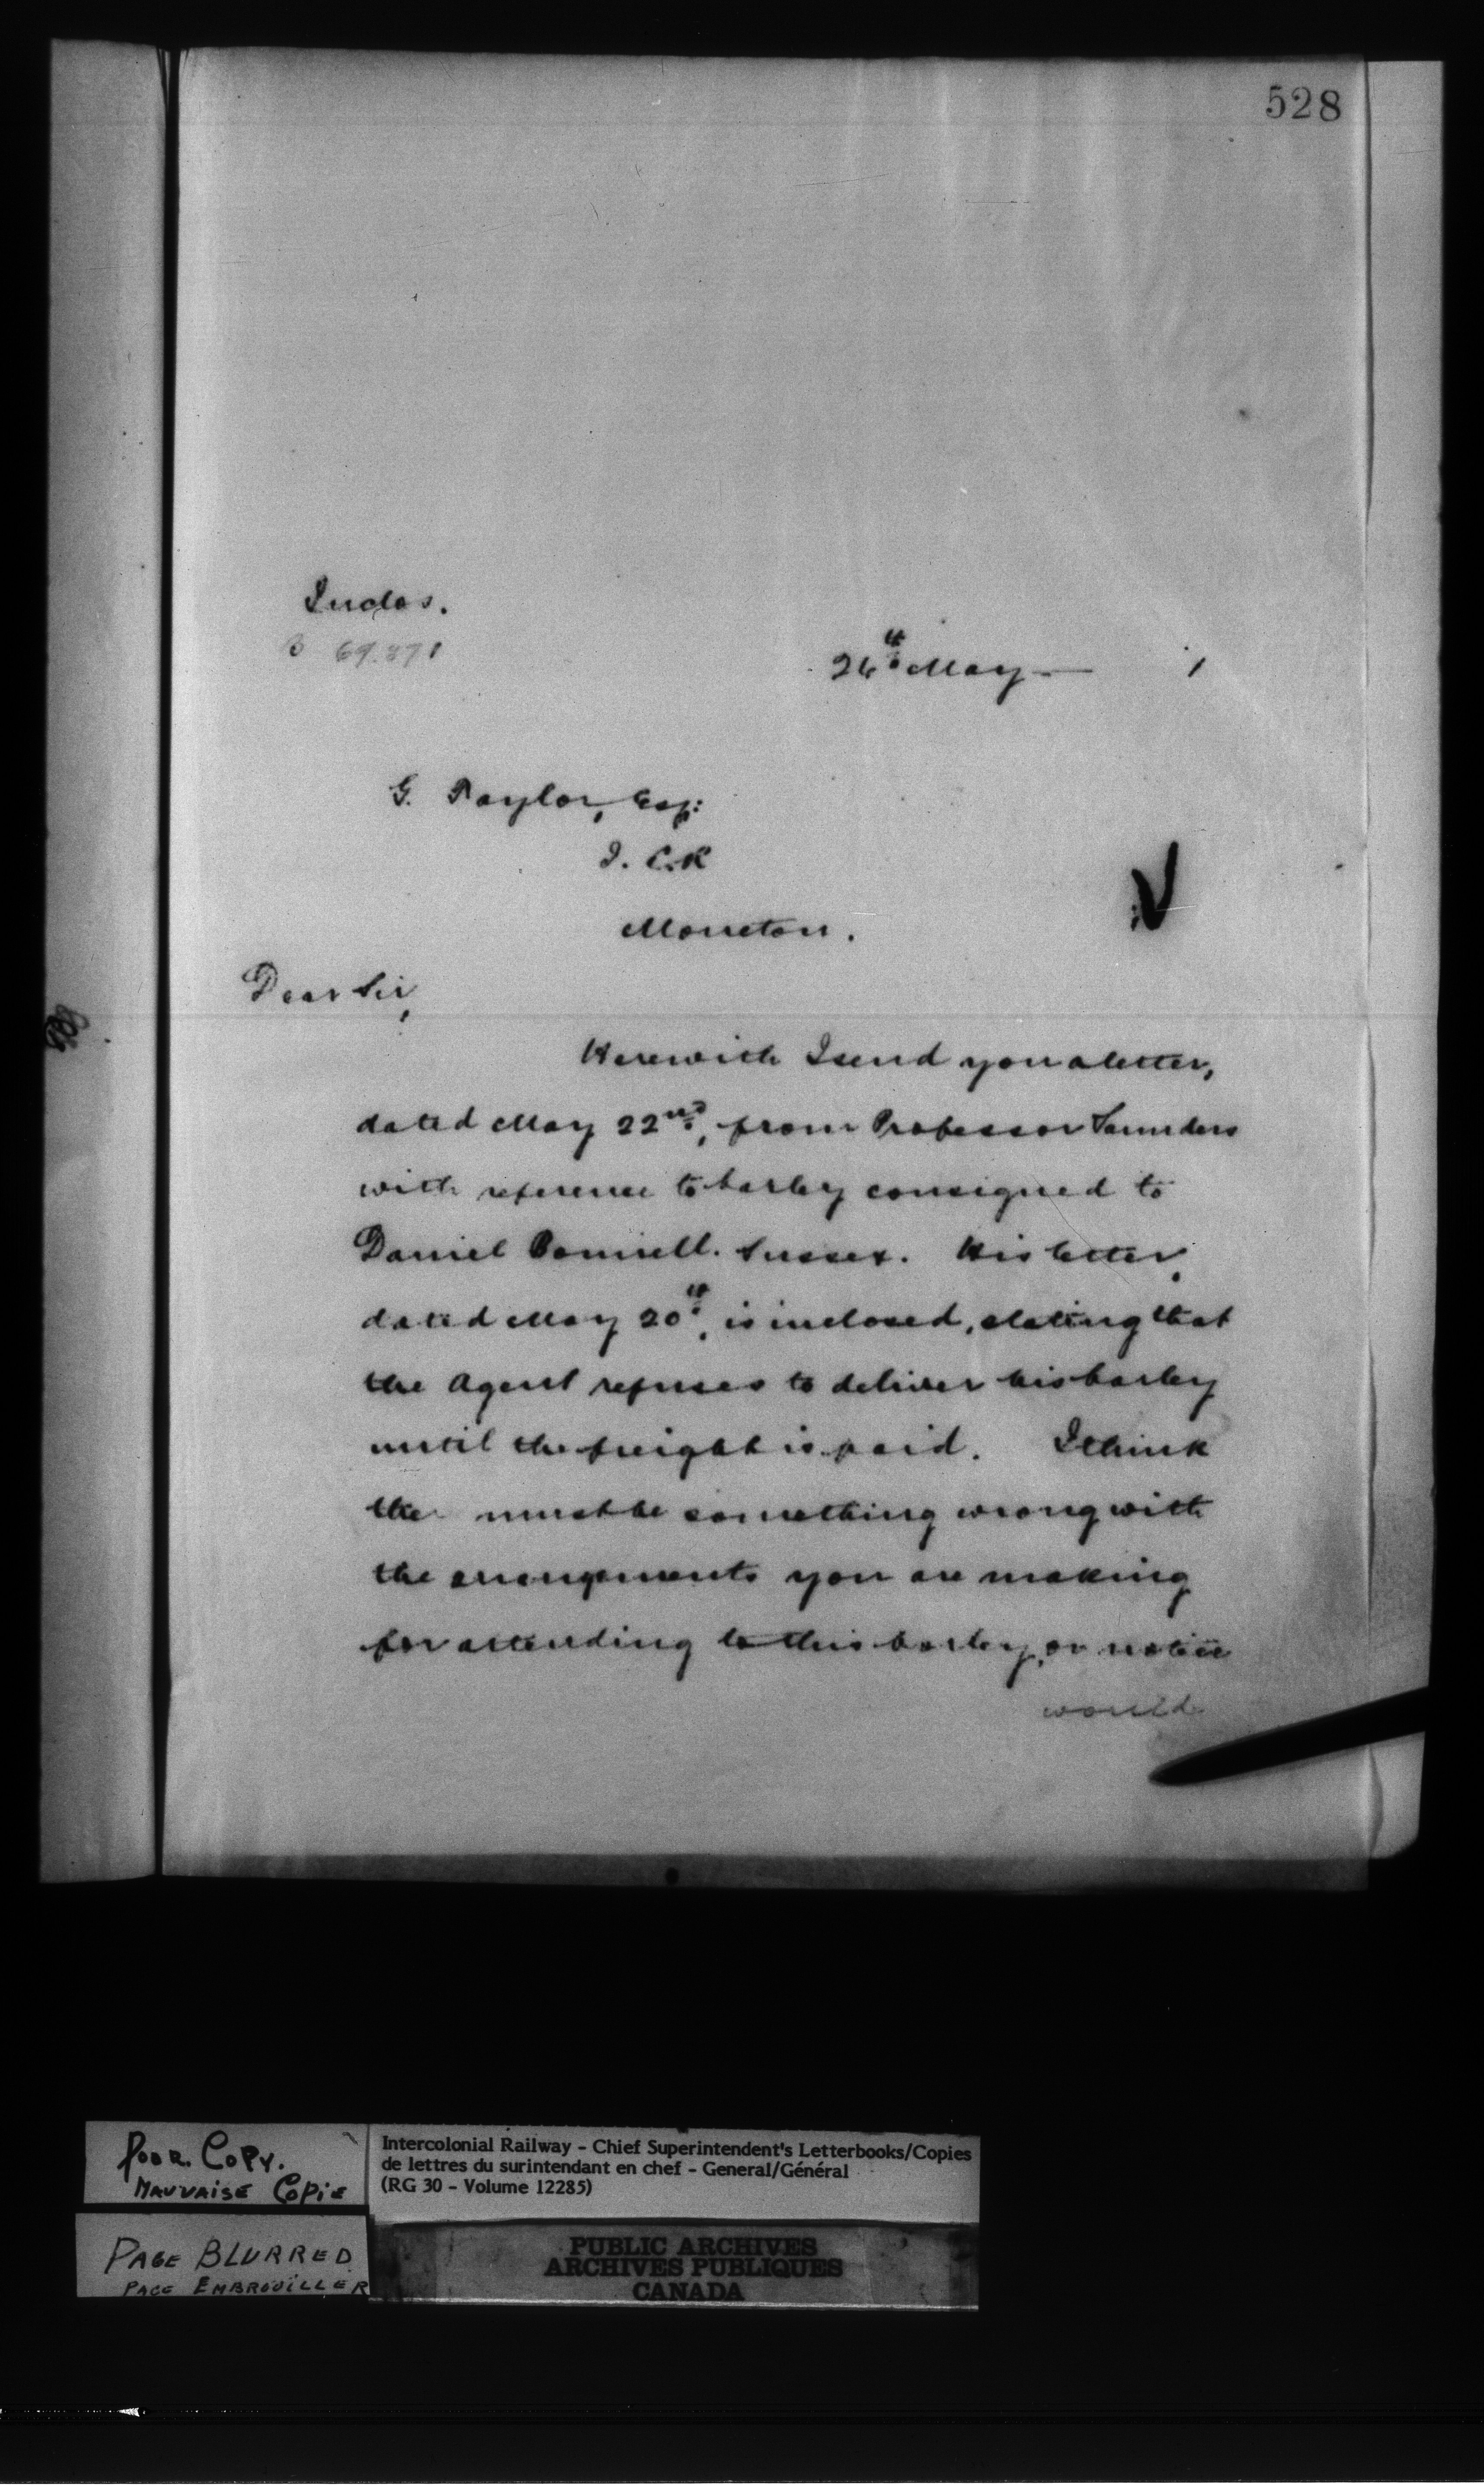 528
Inclos.
B 69.371
26th May — 1
G. Taylor, Esq:
I. C. R
Moncton.
Dear Sir,
Herewith I send you a letter,
dated May 22nd, from Professor Saunders
with reference to barley consigned to
Daniel Sussex. His letter,
dated May 20th, is inclosed, stating that
the Agent refuses to deliver his barley
until the freight is paid. I think
the must be something wrong with
the arrangements you are making
for attending to this barley, or notice
would
POOR COPY.
MAUVAISE COPIE
PAGE BLURRED
PAGE EMBROUILLER
Intercolonial Railway - Chief Superintendent's Letterbooks/Copies
de lettres du surintendant en chef - General/Général
(RG 30 - Volume 12285)
PUBLIC ARCHIVES
ARCHIVES PUBLIQUES
CANADA